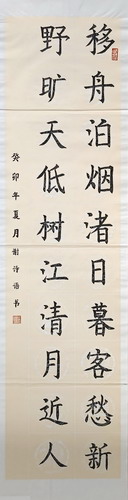 移舟泊烟渚日暮客愁新
野旷天低树江清月近人
癸卯年夏月谢诗语书